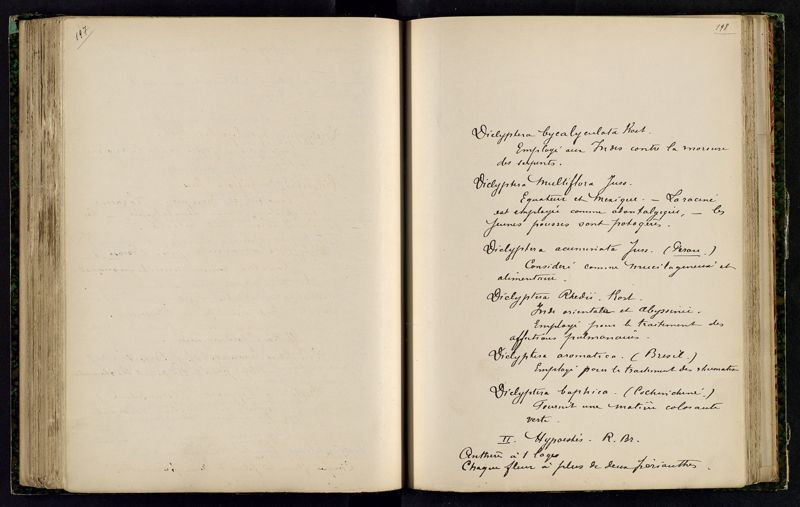 197
198
Diclyptera bycalyculata Kost.
Employé aux Indes contre la morsure
des serpents.
Diclyptera multiflora Juss.
Equateur et Mexique. — La racine
est employée comme odontalgique, — les
jeunes pousses sont potagères.
Diclyptera acuminata Juss. (Perou.)
Consideré comme mucilagineux et
alimentaire.
Diclyptera Rheedii. Kost.
Inde orientale et Abyssinie.
Employé pour le traitement des
affections pulmonaires.
Diclyptera aromatica. (Bresil.)
Employé pour le traitement des rhumatis
Diclyptera baphica. (Cochinchine.)
Fournit une matière colorante
verte.
II. Hypoestes. R. Br.
Anthère à 1 loge
Chaque fleur a plus de deux périanthes.